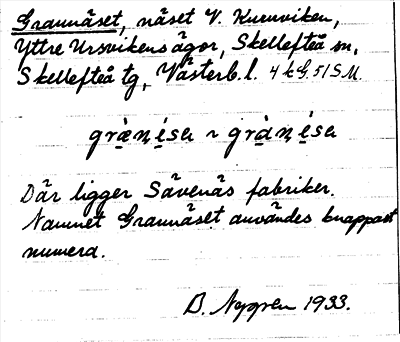 Grannäset, näset V. Kuruviken,
Yttre Ursvikens ägor, Skellefteå sn,
Skellefteå tg, Västerb. l. 4 k G, 51 S M.
græ̀nė́sɛu ~ grànė́sɛu
Där ligger Sävenäs fabriker.
Namnet Grannäset användes knappast
numera.
B. Nygren 1933.